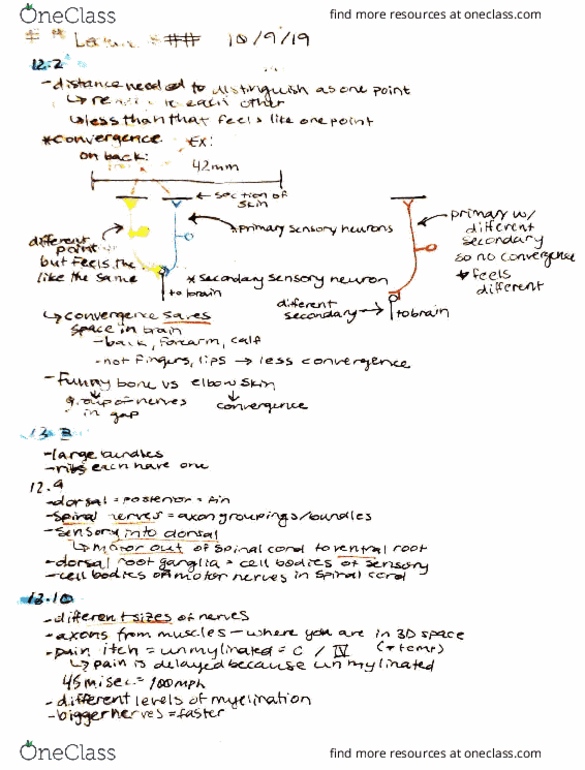 OneClass
find more resources at oneclass.com
10/9/19
12.2
- distance needed to distinguish as one point
↳ each other
↳ less than that feels like one point
*convergence. Ex:
on back:
42mm
← section of skin
different point but feels the like the same
*primary sensory neurons
*secondary sensory neuron
to brain
primary w/ different secondary so no convergence
* feels different
different secondary →
to brain
↳ convergence saves space in brain
- back, forearm, calf
- not fingers, lips → less convergence
- Funny bone vs elbow skin
group of nerves in gap
convergence
- large bundles
- ribs each have one
12.9
- dorsal = posterior =
- spinal nerves = axon groupings/bundles
- sensory into dorsal
↳ motor out of spinal cord to ventral root
- dorsal root ganglia = cell bodies of sensory
- cell bodies of motor nerves in spinal cord
- different sizes of nerves
- axons from muscles – where you are in 3D space
- pain itch = unmylinated = C / IV (+ temp)
↳ pain is delayed because unmylinated
45 m/sec = 100mph
- different levels of myelination
- bigger nerves = faster
OneClass
find more resources at oneclass.com